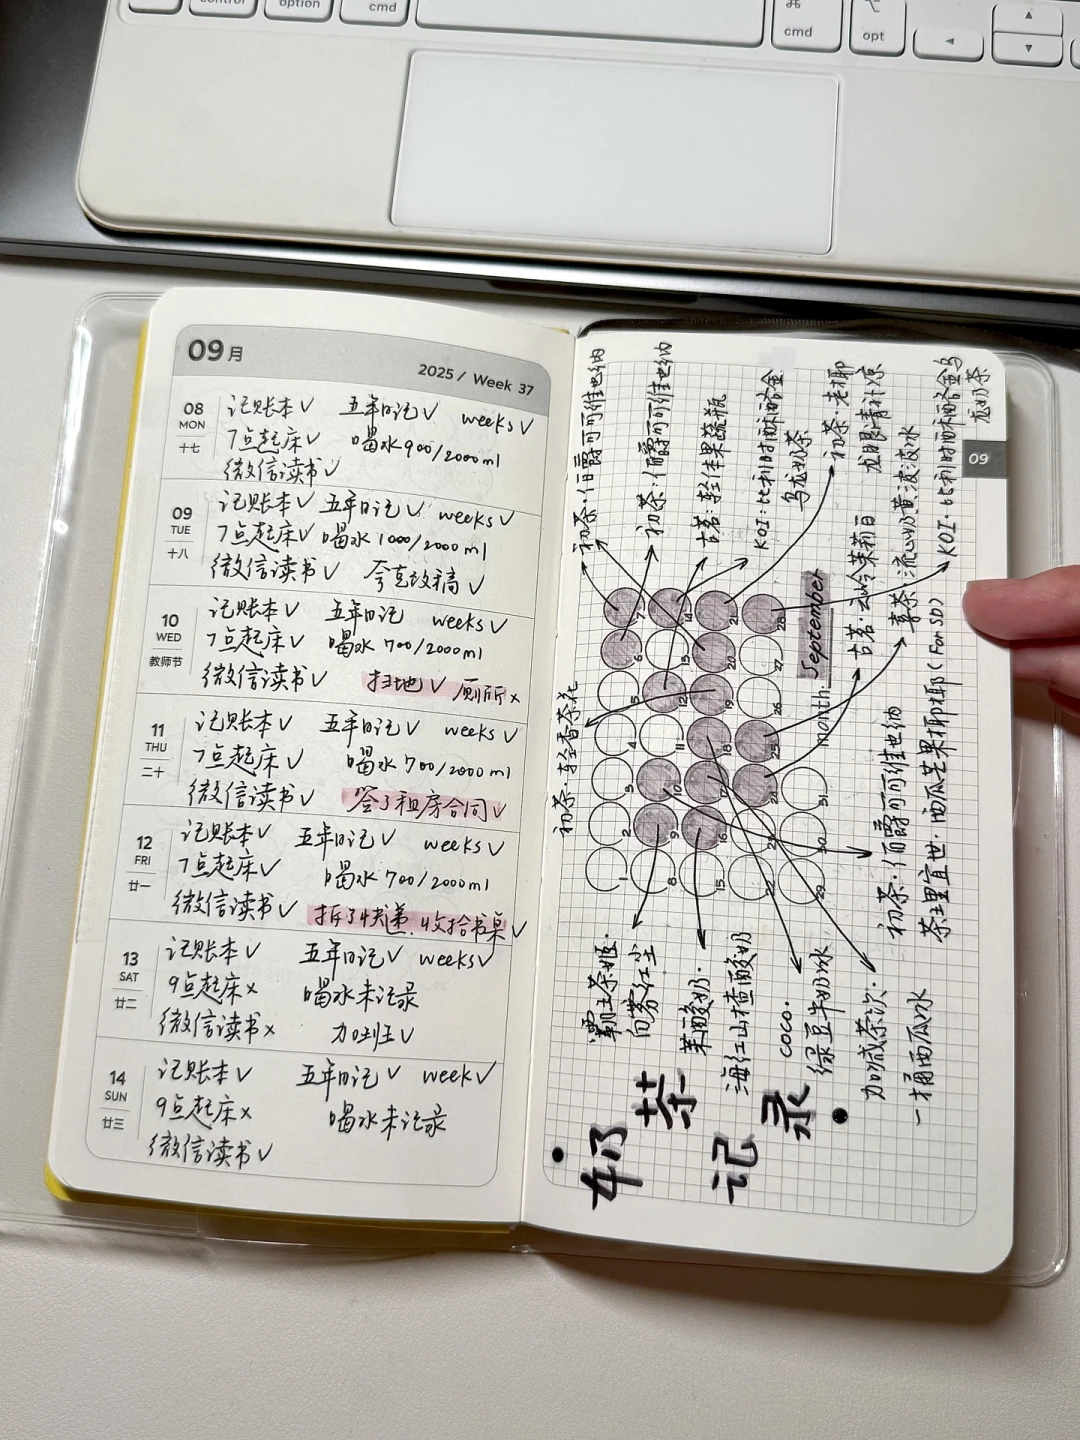 control
option
cmd
⌘
cmd
⌥
opt
09月
2025 / Week 37
08 MON 十七
记账本✓ 五年日记✓ weeks✓
7点起床✓ 喝水900/2000ml
微信读书✓
09 TUE 十八
记账本✓ 五年日记✓ weeks✓
7点起床✓ 喝水1000/2000ml
微信读书✓ 夸克改稿✓
10 WED 教师节
记账本✓ 五年日记 weeks✓
7点起床✓ 喝水700/2000ml
微信读书✓ 扫地✓ 厕所×
11 THU 二十
记账本✓ 五年日记✓ weeks✓
7点起床✓ 喝水700/2000ml
微信读书✓ 签了租房合同✓
12 FRI 廿一
记账本✓ 五年日记✓ weeks✓
7点起床✓ 喝水700/2000ml
微信读书✓ 拆了快递、收拾书桌✓
13 SAT 廿二
记账本✓ 五年日记✓ weeks✓
9点起床× 喝水未记录
微信读书× 加班✓
14 SUN 廿三
记账本✓ 五年日记✓ week✓
9点起床× 喝水未记录
微信读书✓
09
奶茶记录
month: September
1 2 3 4 5 6 7
8 9 10 11 12 13 14
15 16 17 18 19 20 21
22 23 24 25 26 27 28
29 30 31
初茶·轻香茶花
初茶·伯爵可可维也纳
初茶·伯爵可可维也纳
古茗·轻体果蔬瓶
KOI:比利时酥酪金
乌龙奶茶
初茶·老椰
龙眼清补凉
古茗·云岭茉莉白
喜茶·流心奶黄波波冰
KOI·比利时酥酪金乌
龙奶茶
霸王茶姬·
向雾红尘
茉酸奶·
海红山楂酸奶
coco·
绿豆牛奶冰
加减茶次·
一桶西瓜冰
初茶·伯爵可可维也纳
茶理宜世·西瓜芒果椰椰（For SD）